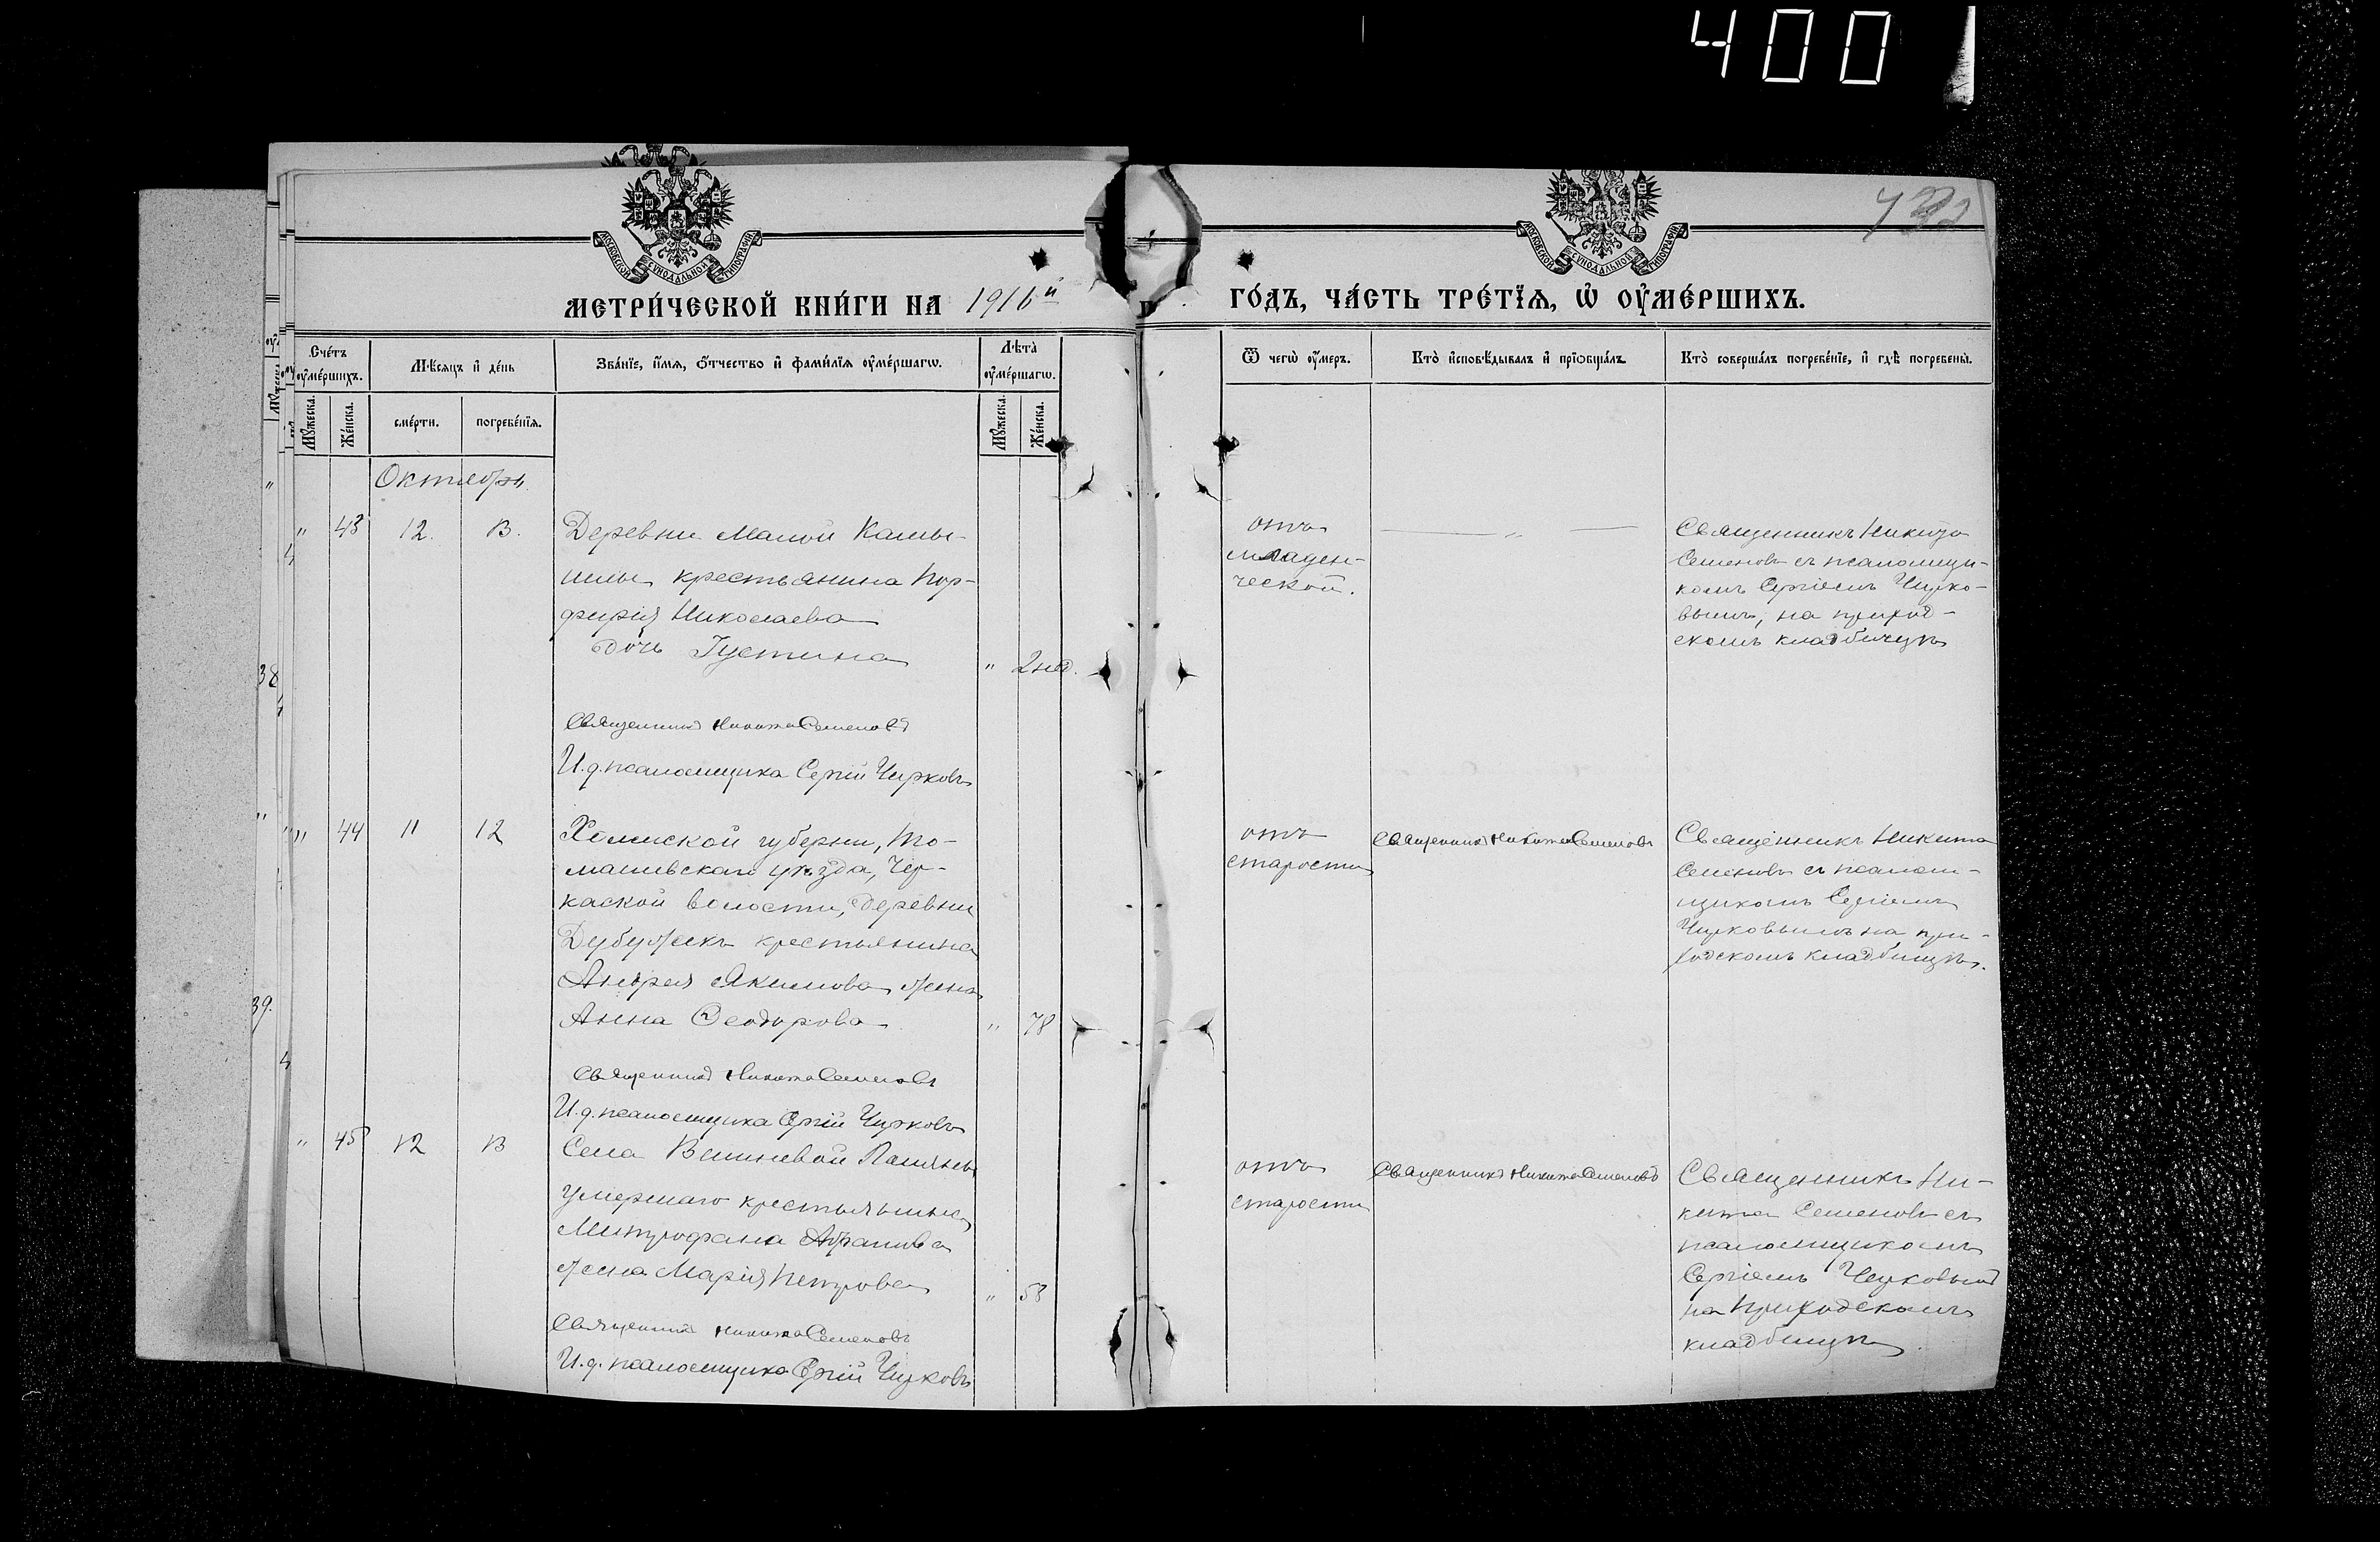 400
432
МОСКОВСКОЙ СѴНОДАЛЬНОЙ ТИПОГРАФІИ
МОСКОВСКОЙ СѴНОДАЛЬНОЙ ТИПОГРАФІИ
МЕТРИ́ЧЕСКОЙ КНИ́ГИ НА 1916й
ГО́ДЪ, ЧА́СТЬ ТРЕ́ТЇѦ, Ѡ҆ ОУ҆МЕ́РШИХЪ.
Сче́тъ оу҆ме́ршихъ.
Мѣ́сѧцъ и҆ де́нь
Зва́нїе, и҆́мѧ, о҆́тчество и҆ фами́лїѧ оу҆ме́ршагѡ.
Лѣта̀ оу҆ме́ршагѡ.
Ѿ чегѡ̀ оу҆́меръ.
Кто̀ и҆сповѣ́дывалъ и҆ прїѡбща́лъ.
Кто̀ соверша́лъ погребе́нїе, и҆ гдѣ̀ погребены̀.
Мꙋ́жеска.
Же́нска.
сме́рти.
погребе́нїѧ.
Мꙋ́жеска.
Же́нска.
Октябрь.
" 43 12. 13.
Деревни Малой Камы-
шлы крестьянина Пор-
фирія Николаева
дочь Густина
" 2 нед.
отъ
младен-
ческой.
"
Священникъ Никита
Семеновъ съ псаломщи-
комъ Сергіемъ Чирко-
вымъ, на приход-
скомъ кладбищѣ
Священникъ Никита Семеновъ
И.д. псаломщика Сергій Чирковъ
" 44 11 12
Холмской губерніи, То-
машевскаго уѣзда, Чер-
каской волости, деревни
крестьянина
Андрея Акимова жена
Анна Ѳеодорова
" 78
отъ
старости
Священникъ Никита Семеновъ
Священникъ Никита
Семеновъ съ псалом-
щикомъ Сергіемъ
Чирковымъ на при-
ходскомъ кладбищѣ.
Священникъ Никита Семеновъ
И.д. псаломщика Сергій Чирковъ
" 45 12 13
Села Вишневой Поляны
умершаго крестьянина
Митрофана Абрамова
жена Марія Петрова
" 58
отъ
старости
Священникъ Никита Семеновъ
Священникъ Ни-
кита Семеновъ съ
псаломщикомъ
Сергіемъ Чирковымъ
на приходскомъ
кладбищѣ.
Священникъ Никита Семеновъ
И.д. псаломщика Сергій Чирковъ
38
39.